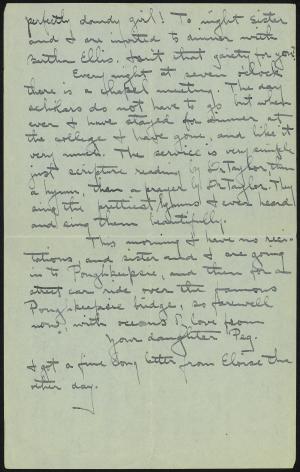 perfectly dandy girl! To night sister
and I are invited to dinner with
Bertha Ellis. Isn't that gaiety for you?
Every night at seven oclock
there is a chapel meeting. The day
scholars do not have to go but when
ever I have stayed for dinner at
the college I have gone, and like it
very much. The service is very simple
just scripture reading by Dr Taylor, then
a hymn, then a prayer by Dr Taylor. They
sing the prettiest hymns I ever heard
and sing them beautifully.
This morning I have no reci-
tations, and sister and I are going
in to Poughkeepsie, and then for a
street car ride over the famous
Poughkeepsie bridge, so farewell
now, with oceans of love from
Your daughter Peg.
I got a fine long letter from Eloise the
other day.